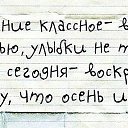 ние классное- в
ью, улыбки не т
сегодня- воскр
у, что осень и